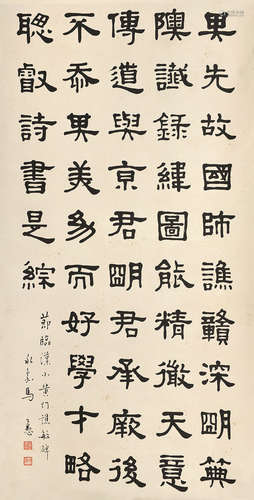 其先故國師譙贛深明典
隩讖錄緯圖能精微天意
傳道與京君明君承厥後
不忝其美幼而好學才略
聰叡詩書是綜
節臨漢小黃門譙敏碑
永嘉馬公愚